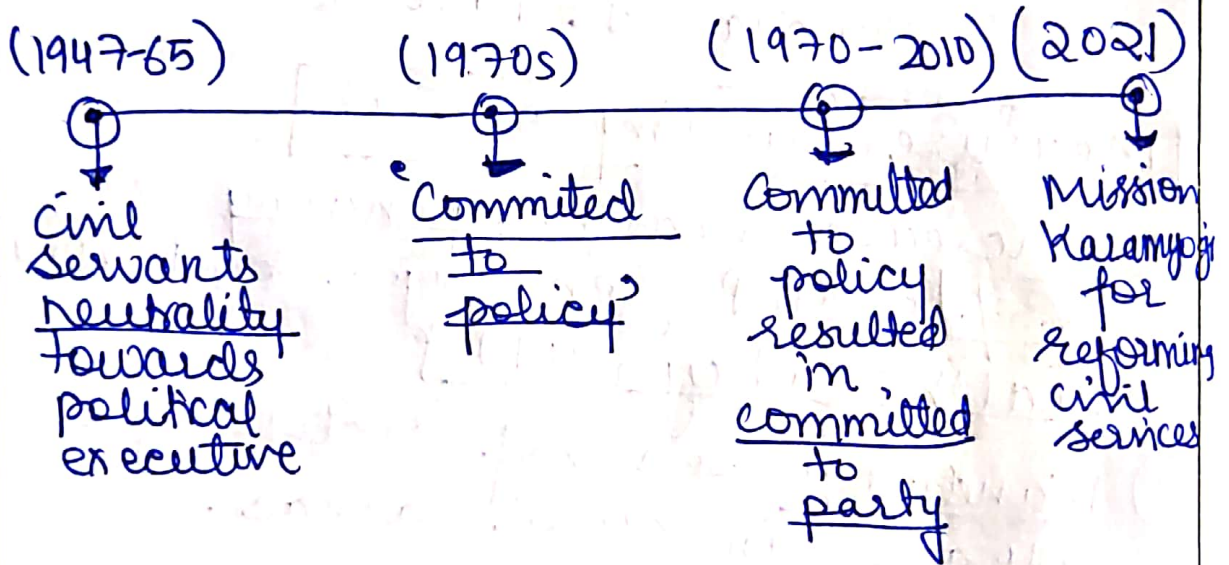 (1947-65) (1970s) (1970-2010) (2021)
civil
servants
neutrality
towards
political
executive
'Commited
to
policy'
Committed
to
policy
resulted
in
committed
to
party
Mission
Karamyogi
for
reforming
civil
services